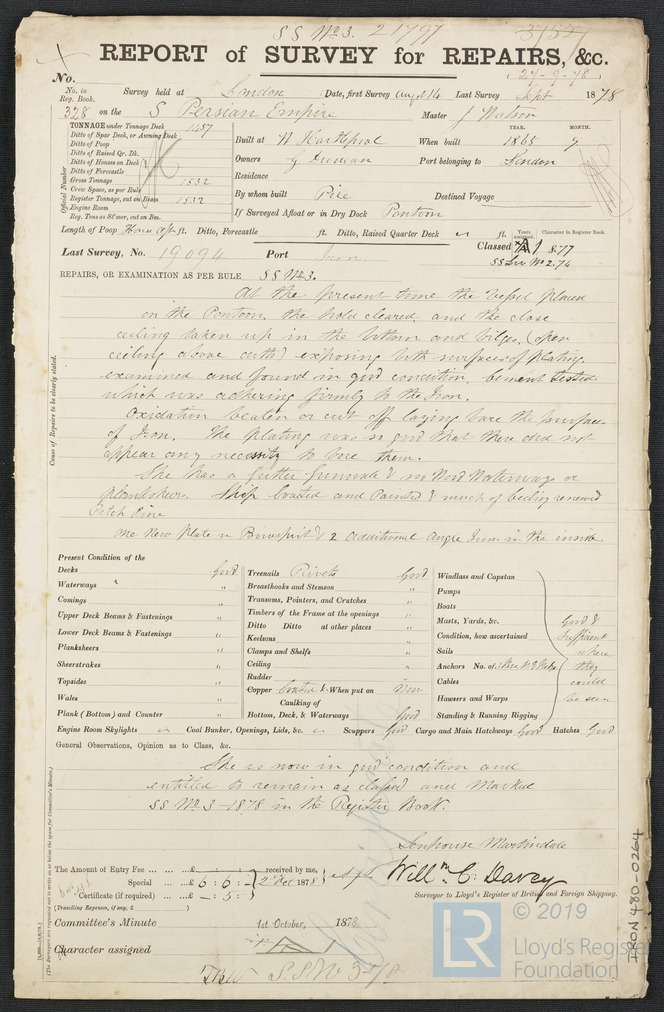 S S No 3. 2 1797
REPORT of SURVEY for REPAIRS, &c.
27-9-78
No.
No. in Reg. Book. Survey held at London Date, first Survey Augst 14 Last Survey Sept 1878
328 on the S Persian Empire Master J Watson
TONNAGE under Tonnage Deck 1487
Ditto of Spar Deck, or Awning Deck
Ditto of Poop
Ditto of Raised Qr. Dk.
Ditto of Houses on Deck
Ditto of Forecastle
Gross Tonnage 1532
Crew Space, as per Rule
Register Tonnage, cut on Beam 1532
Engine Room
Reg. Tons as St'mer, cut on Bm.
Official Number
Built at W Hartlepool When built YEAR. 1865 MONTH. 7
Owners Port belonging to London
Residence
By whom built Pile Destined Voyage
If Surveyed Afloat or in Dry Dock Pontoon
Length of Poop ft. Ditto, Forecastle ft. Ditto, Raised Quarter Deck ft.
Years assigned. Character in Register Book.
Classed A 1 8.77
SS Lon No 2.74
Last Survey, No. 19094 Port Iron
REPAIRS, OR EXAMINATION AS PER RULE S S No 3.
Cause of Repairs to be clearly stated.
At the present time the vessel placed
on the Pontoon, the hold cleared, and the close
ceiling taken up in the bottom and bilges, (open
ceiling above that) exposing both surfaces of plating,
examined and found in good condition, cement tested
which was adhering firmly to the Iron.
Oxidation beaten or cut off laying bare the surface
of Iron. The plating was so good that there did not
appear any necessity to bore them.
She has a gutter gunwale & no Wood Waterways or
plansheer. Ship coated and Painted & much of ceiling renewed
Pitch Pine
One New plate in Bowsprit & 2 additional Angle Irons in the inside
Present Condition of the
Decks Good
Waterways "
Comings "
Upper Deck Beams & Fastenings "
Lower Deck Beams & Fastenings "
Planksheers "
Sheerstrakes "
Topsides "
Wales "
Plank (Bottom) and Counter "
Treenails Rivets Good
Breasthooks and Stemson "
Transoms, Pointers, and Crutches "
Timbers of the Frame at the openings "
Ditto Ditto at other places "
Keelsons "
Clamps and Shelfs "
Ceiling "
Rudder "
Copper coated When put on Now
Caulking of
Bottom, Deck, & Waterways Good
Windlass and Capstan
Pumps
Boats
Masts, Yards, &c.
Condition, how ascertained
Sails
Anchors No. of
Cables
Hawsers and Warps
Standing & Running Rigging
Good &
sufficient
where
they
could
be seen
Engine Room Skylights Coal Bunker, Openings, Lids, &c. Scuppers Good Cargo and Main Hatchways Good Hatches Good
General Observations, Opinion as to Class, &c.
She is now in good condition and
entitled to remain as classed and Marked
SS No 3-1878 in the Register Book.
(The Surveyors are requested not to write on or below the space for Committee's Minute.)
Senhouse Martindale
The Amount of Entry Fee ... £ : : received by me,
Special ... £ 5 : 5 : - 2 Oct 1878
Certificate (if required) ... £ - : 5 : -
(Travelling Expenses, if any, £ )
Willm C. Davey
Surveyor to Lloyd's Register of British and Foreign Shipping.
Committee's Minute 1st October, 1878.
Character assigned A
S.S No 3-78
IRON 480-0264
LR
© 2019
Lloyd's Register
Foundation